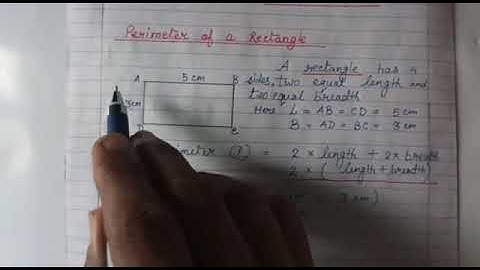 Perimeter of a Rectangle
A rectangle has 4
sides, two equal length and
two equal breadth
A 5 cm B
3cm
C
Here L = AB = CD = 5 cm
B = AD = BC = 3 cm
= 2 × length + 2 × breadth
2 × ( length + breadth)
3 cm )